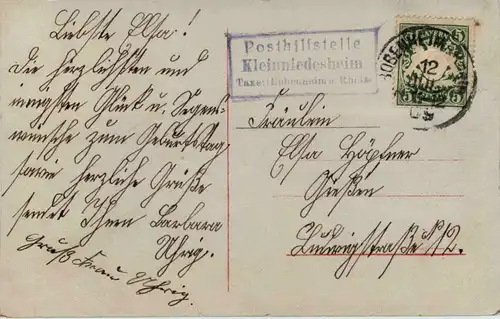 Liebste Elsa!
Die herzlichsten und
innigsten Glück u. Segens-
wünsche zum Geburtstag
sowie herzliche Grüße
sendet Ihnen Barbara
Uhrig.
Gruß Frau Uhrig.
Posthilfstelle
Kleinniedesheim
Taxe: Bobenheim a. Rhein
BOBENHEIM
12
5 5
Fräulein
Elsa Höpfner
Gießen
Ludwigstraße No 12.